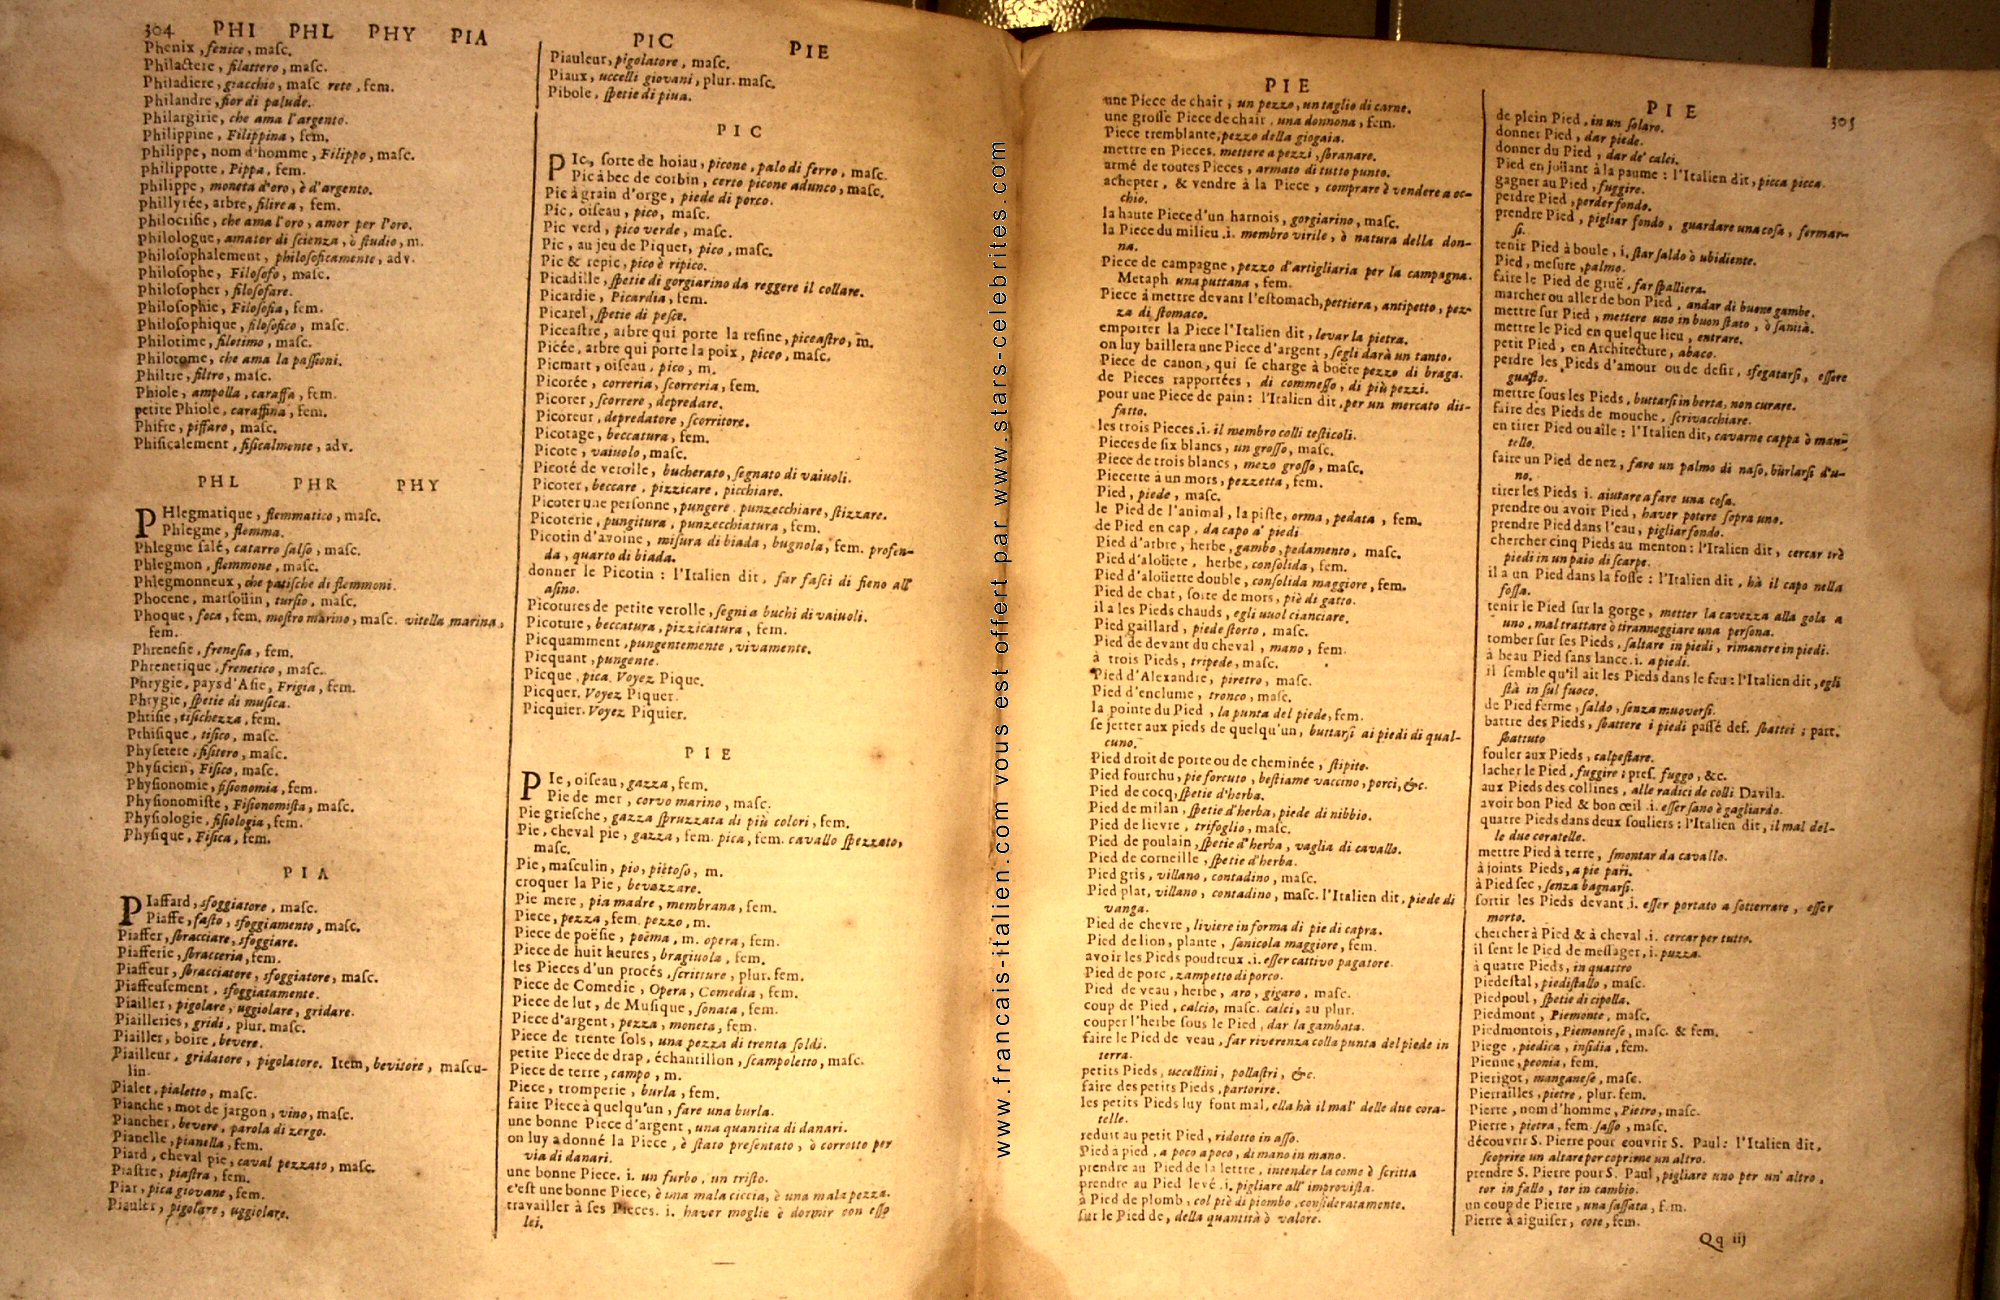 304 PHI PHL PHY PIA
Phenix, fenice, masc.
Philactere, filattero, masc.
Philadiere, giacchio, masc rete, fem.
Philandre, fior di palude.
Philargirie, che ama l'argento.
Philippine, Filippina, fem.
philippe, nom d'homme, Filippo, masc.
philippotte, Pippa, fem.
philippe, moneta d'oro, è d'argento.
phillyrée, arbre, filirea, fem.
philocrisie, che ama l'oro, amor per l'oro.
philologue, amator di scienza, ò studio, m.
philosophalement, philosoficamente, adv.
Philosophe, Filosofo, masc.
Philosopher, filosofare.
Philosophie, Filosofia, fem.
Philosophique, filosofico, masc.
Philotime, filotimo, masc.
Philotome, che ama la passioni.
Philtre, filtro, masc.
Phiole, ampolla, caraffa, fem.
petite Phiole, caraffina, fem.
Phifre, piffaro, masc.
Phisicalement, fisicalmente, adv.
PHL PHR PHY
PHlegmatique, flemmatico, masc.
Phlegme, flemma.
Phlegme salé, catarro salso, masc.
Phlegmon, flemmone, masc.
Phlegmonneux, che patische di flemmoni.
Phocene, marsoüin, tursio, masc.
Phoque, foca, fem. mostro marino, masc. vitella marina,
fem.
Phrenesie, frenesia, fem.
Phrenetique, frenetico, masc.
Phrygie, pays d'Asie, Frigia, fem.
Phrygie, spetie di musica.
Phtisie, tisichezza, fem.
Pthisique, tisico, masc.
Physetere, fisitero, masc.
Physicien, Fisico, masc.
Physionomie, fisionomia, fem.
Physionomiste, Fisionomista, masc.
Physiologie, fisiologia, fem.
Physique, Fisica, fem.
PIA
PIaffard, sfoggiatore, masc.
Piaffe, fasto, sfoggiamento, masc.
Piaffer, sbracciare, sfoggiare.
Piafferie, sbracceria, fem.
Piaffeur, sbracciatore, sfoggiatore, masc.
Piaffeusement, sfoggiatamente.
Piailler, pigolare, uggiolare, gridare.
Piailleries, gridi, plur. masc.
Piailler, boire, bevere.
Piailleur, gridatore, pigolatore. Item, bevitore, mascu-
lin.
Pialet, pialetto, masc.
Pianche, mot de jargon, vino, masc.
Piancher, bevere, parola di zergo.
Pianelle, pianella, fem.
Piard, cheval pie, caval pezzato, masc.
Piastre, piastra, fem.
Piat, pica giovane, fem.
Piauler, pigolare, uggiolare.
PIC PIE
Piauleur, pigolatore, masc.
Piaux, uccelli giovani, plur. masc.
Pibole, spetie di piua.
PIC
PIc, sorte de hoiau, picone, palo di ferro, masc.
Pic à bec de corbin, certo picone adunco, masc.
Pic à grain d'orge, piede di porco.
Pic, oiseau, pico, masc.
Pic verd, pico verde, masc.
Pic, au jeu de Piquet, pico, masc.
Pic & repic, pico è ripico.
Picadille, spetie di gorgiarino da reggere il collare.
Picardie, Picardia, fem.
Picarel, spetie di pesce.
Piceastre, arbre qui porte la resine, piceastro, m.
Picée, arbre qui porte la poix, piceo, masc.
Picmart, oiseau, pico, m.
Picorée, correria, scorreria, fem.
Picorer, scorrere, depredare.
Picoreur, depredatore, scorritore.
Picotage, beccatura, fem.
Picote, vaiuolo, masc.
Picoté de verolle, bucherato, segnato di vaiuoli.
Picoter, beccare, pizzicare, picchiare.
Picoter une personne, pungere, punzecchiare, stizzare.
Picoterie, pungitura, punzecchiatura, fem.
Picotin d'avoine, misura di biada, bugnola, fem. profen-
da, quarto di biada.
donner le Picotin : l'Italien dit, far fasci di fieno all'
asino.
Picotures de petite verolle, segni a buchi di vaiuoli.
Picoture, beccatura, pizzicatura, fem.
Picquamment, pungentemente, vivamente.
Picquant, pungente.
Picque, pica. Voyez Pique.
Picquer. Voyez Piquer.
Picquier. Voyez Piquier.
PIE
PIe, oiseau, gazza, fem.
Pie de mer, corvo marino, masc.
Pie griesche, gazza spruzzata di più colori, fem.
Pie, cheval pie, gazza, fem. pica, fem. cavallo spezzato,
masc.
Pie, masculin, pio, pietoso, m.
croquer la Pie, bevazzare.
Pie mere, pia madre, membrana, fem.
Piece, pezza, fem. pezzo, m.
Piece de poësie, poëma, m. opera, fem.
Piece de huit heures, bragiuola, fem.
les Pieces d'un procés, scritture, plur. fem.
Piece de Comedie, Opera, Comedia, fem.
Piece de lut, de Musique, sonata, fem.
Piece d'argent, pezza, moneta, fem.
Piece de trente sols, una pezza di trenta soldi.
petite Piece de drap, échantillon, scampoletto, masc.
Piece de terre, campo, m.
Piece, tromperie, burla, fem.
faire Piece à quelqu'un, fare una burla.
une bonne Piece d'argent, una quantita di danari.
on luy a donné la Piece, è stato presentato, ò corrotto per
via di danari.
une bonne Piece. i. un furbo, un tristo.
c'est une bonne Piece, è una mala ciccia, è una mala pezza.
travailler à ses Pieces. i. haver moglie è dormir con esso
lei.
www.francais-italien.com vous est offert par www.stars-celebrites.com
PIE
une Piece de chair, un pezzo, un taglio di carne.
une grosse Piece de chair, una donnona, fem.
Piece tremblante, pezzo della giogaia.
mettre en Pieces, mettere a pezzi, sbranare.
armé de toutes Pieces, armato di tutto punto.
achepter, & vendre à la Piece, comprare è vendere a oc-
chio.
la haute Piece d'un harnois, gorgiarino, masc.
la Piece du milieu .i. membro virile, ò natura della don-
na.
Piece de campagne, pezzo d'artigliaria per la campagna.
Metaph una puttana, fem.
Piece à mettre devant l'estomach, pettiera, antipetto, pez-
za di stomaco.
emporter la Piece l'Italien dit, levar la pietra.
on luy baillera une Piece d'argent, segli darà un tanto.
Piece de canon, qui se charge à boëte pezzo di braga.
de Pieces rapportées, di commesso, di più pezzi.
pour une Piece de pain : l'Italien dit, per un mercato dis-
fatto.
les trois Pieces .i. il membro colli testicoli.
Pieces de six blancs, un grosso, masc.
Piece de trois blancs, mezo grosso, masc.
Piecette à un mors, pezzetta, fem.
Pied, piede, masc.
le Pied de l'animal, la piste, orma, pedata, fem.
de Pied en cap, da capo a' piedi
Pied d'arbre, herbe, gambo, pedamento, masc.
Pied d'aloüete, herbe, consolida, fem.
Pied d'aloüette double, consolida maggiore, fem.
Pied de chat, sorte de mors, piè di gatto.
il a les Pieds chauds, egli vuol cianciare.
Pied gaillard, piede storto, masc.
Pied de devant du cheval, mano, fem.
à trois Pieds, tripede, masc.
Pied d'Alexandre, piretro, masc.
Pied d'enclume, tronco, masc.
la pointe du Pied, la punta del piede, fem.
se jetter aux pieds de quelqu'un, buttarsi ai piedi di qual-
cuno.
Pied droit de porte ou de cheminée, stipite.
Pied fourchu, pie forcuto, bestiame vaccino, porci, &c.
Pied de cocq, spetie d'herba.
Pied de milan, spetie d'herba, piede di nibbio.
Pied de lievre, trifoglio, masc.
Pied de poulain, spetie d'herba, vaglia di cavallo.
Pied de corneille, spetie d'herba.
Pied gris, villano, contadino, masc.
Pied plat, villano, contadino, masc. l'Italien dit, piede di
vanga.
Pied de chevre, liviere in forma di pie di capra.
Pied de lion, plante, sanicola maggiore, fem.
avoir les Pieds poudreux .i. esser cattivo pagatore.
Pied de porc, zampetto di porco.
Pied de veau, herbe, aro, gigaro, masc.
coup de Pied, calcio, masc. calci, au plur.
couper l'herbe sous le Pied, dar la gambata.
faire le Pied de veau, far riverenza colla punta del piede in
terra.
petits Pieds, uccellini, pollastri, &c.
faire des petits Pieds, partorire.
les petits Pieds luy font mal, ella hà il mal' delle due cora-
telle.
reduit au petit Pied, ridotto in asso.
Pied à pied, a poco a poco, di mano in mano.
prendre au Pied de la lettre, intender la come è scritta
prendre au Pied levé .i. pigliare all' improvista.
à Pied de plomb, col piè di piombo, consideratamente.
sur le Pied de, della quantità ò valore.
PIE 305
de plein Pied, in un solaro.
donner Pied, dar piede.
donner du Pied, dar de' calci.
Pied en joüant à la paume : l'Italien dit, picca picca.
gagner au Pied, fuggire.
perdre Pied, perder fondo.
prendre Pied, pigliar fondo, guardare una cosa, fermar-
si.
tenir Pied à boule, i. star saldo ò ubidiente.
Pied, mesure, palmo.
faire le Pied de gruë, far spalliera.
marcher ou aller de bon Pied, andar di buone gambe.
mettre sur Pied, mettere uno in buon stato, ò sanità.
mettre le Pied en quelque lieu, entrare.
petit Pied, en Architecture, abaco.
perdre les Pieds d'amour ou de desir, sfegatarsi, essere
guasto.
mettre sous les Pieds, buttarsi in berta, non curare.
faire des Pieds de mouche, scrivacchiare.
en tirer Pied ou aile : l'Italien dit, cavarne cappa ò man-
tello.
faire un Pied de nez, fare un palmo di naso, burlarsi d'u-
no.
tirer les Pieds i. aiutare a fare una cosa.
prendre ou avoir Pied, haver potere sopra uno.
prendre Pied dans l'eau, pigliar fondo.
chercher cinq Pieds au menton : l'Italien dit, cercar trè
piedi in un paio di scarpe.
il a un Pied dans la fosse : l'Italien dit, hà il capo nella
fossa.
tenir le Pied sur la gorge, metter la cavezza alla gola a
uno, mal trattare ò tiranneggiare una persona.
tomber sur ses Pieds, saltare in piedi, rimanere in piedi.
à beau Pied sans lance .i. a piedi.
il semble qu'il ait les Pieds dans le feu : l'Italien dit, egli
stà in sul fuoco.
de Pied ferme, saldo, senza muoversi.
battre des Pieds, sbattere i piedi passé def. sbattei ; part.
sbattuto
fouler aux Pieds, calpestare.
lacher le Pied, fuggire ; pres. fuggo, &c.
aux Pieds des collines, alle radici de colli Davila.
avoir bon Pied & bon œil .i. esser sano è gagliardo.
quatre Pieds dans deux souliers : l'Italien dit, il mal del-
le due coratelle.
mettre Pied à terre, smontar da cavallo.
à joints Pieds, a pie pari.
à Pied sec, senza bagnarsi.
sortir les Pieds devant .i. esser portato a sotterrare, esser
morto.
chercher à Pied & à cheval .i. cercar per tutto.
il sent le Pied de messager, i. puzza.
à quatre Pieds, in quattro
Piedestal, piedistallo, masc.
Piedpoul, spetie di cipolla.
Piedmont, Piemonte, masc.
Piedmontois, Piemontese, masc. & fem.
Piege, piedica, insidia, fem.
Pienne, peonia, fem.
Pierigot, manganese, masc.
Pierrailles, pietre, plur. fem.
Pierre, nom d'homme, Pietro, masc.
Pierre, pietra, fem sasso, masc.
découvrir S. Pierre pour couvrir S. Paul : l'Italien dit,
scoprire un altare per coprime un altro.
prendre S. Pierre pour S. Paul, pigliare uno per un' altro,
tor in fallo, tor in cambio.
un coup de Pierre, una sassata, fem.
Pierre à aiguiser, cote, fem.
Qq iij